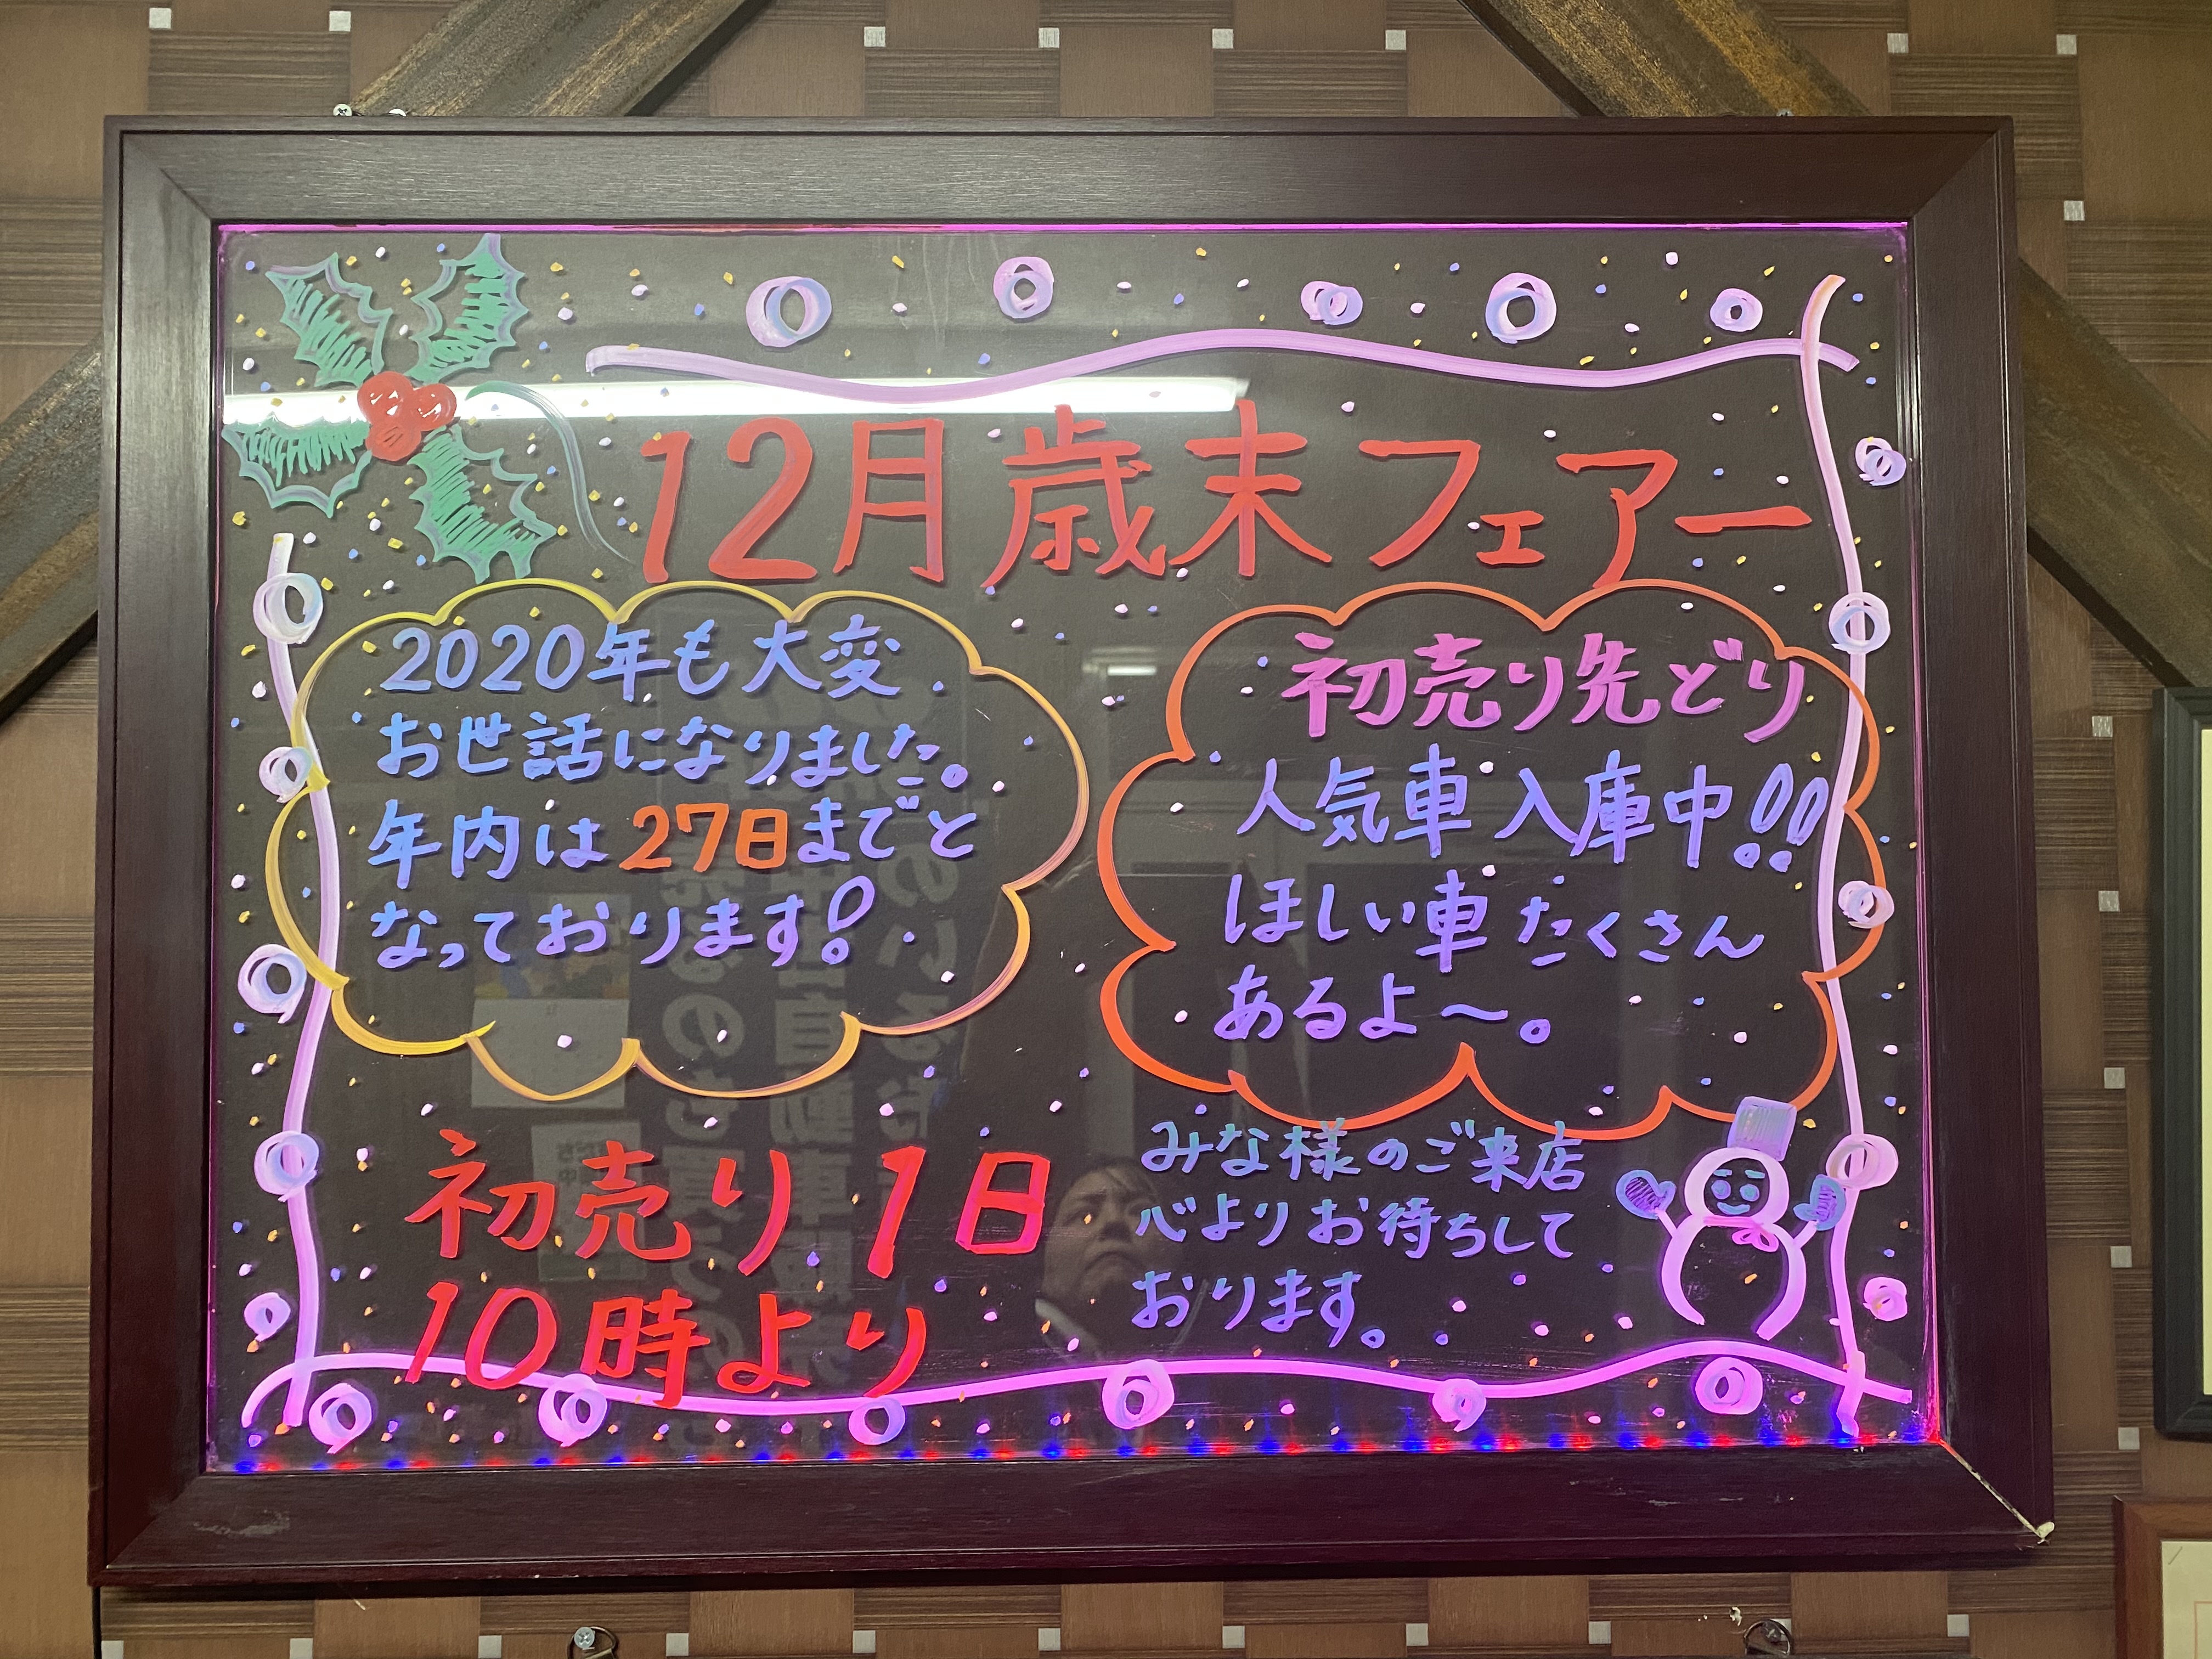 12月歳末フェアー
2020年も大変
お世話になりました。
年内は27日までと
なっております!
初売り先どり
人気車入庫中!!
ほしい車たくさん
あるよ〜。
初売り1日
10時より
みな様のご来店
心よりお待ちして
おります。